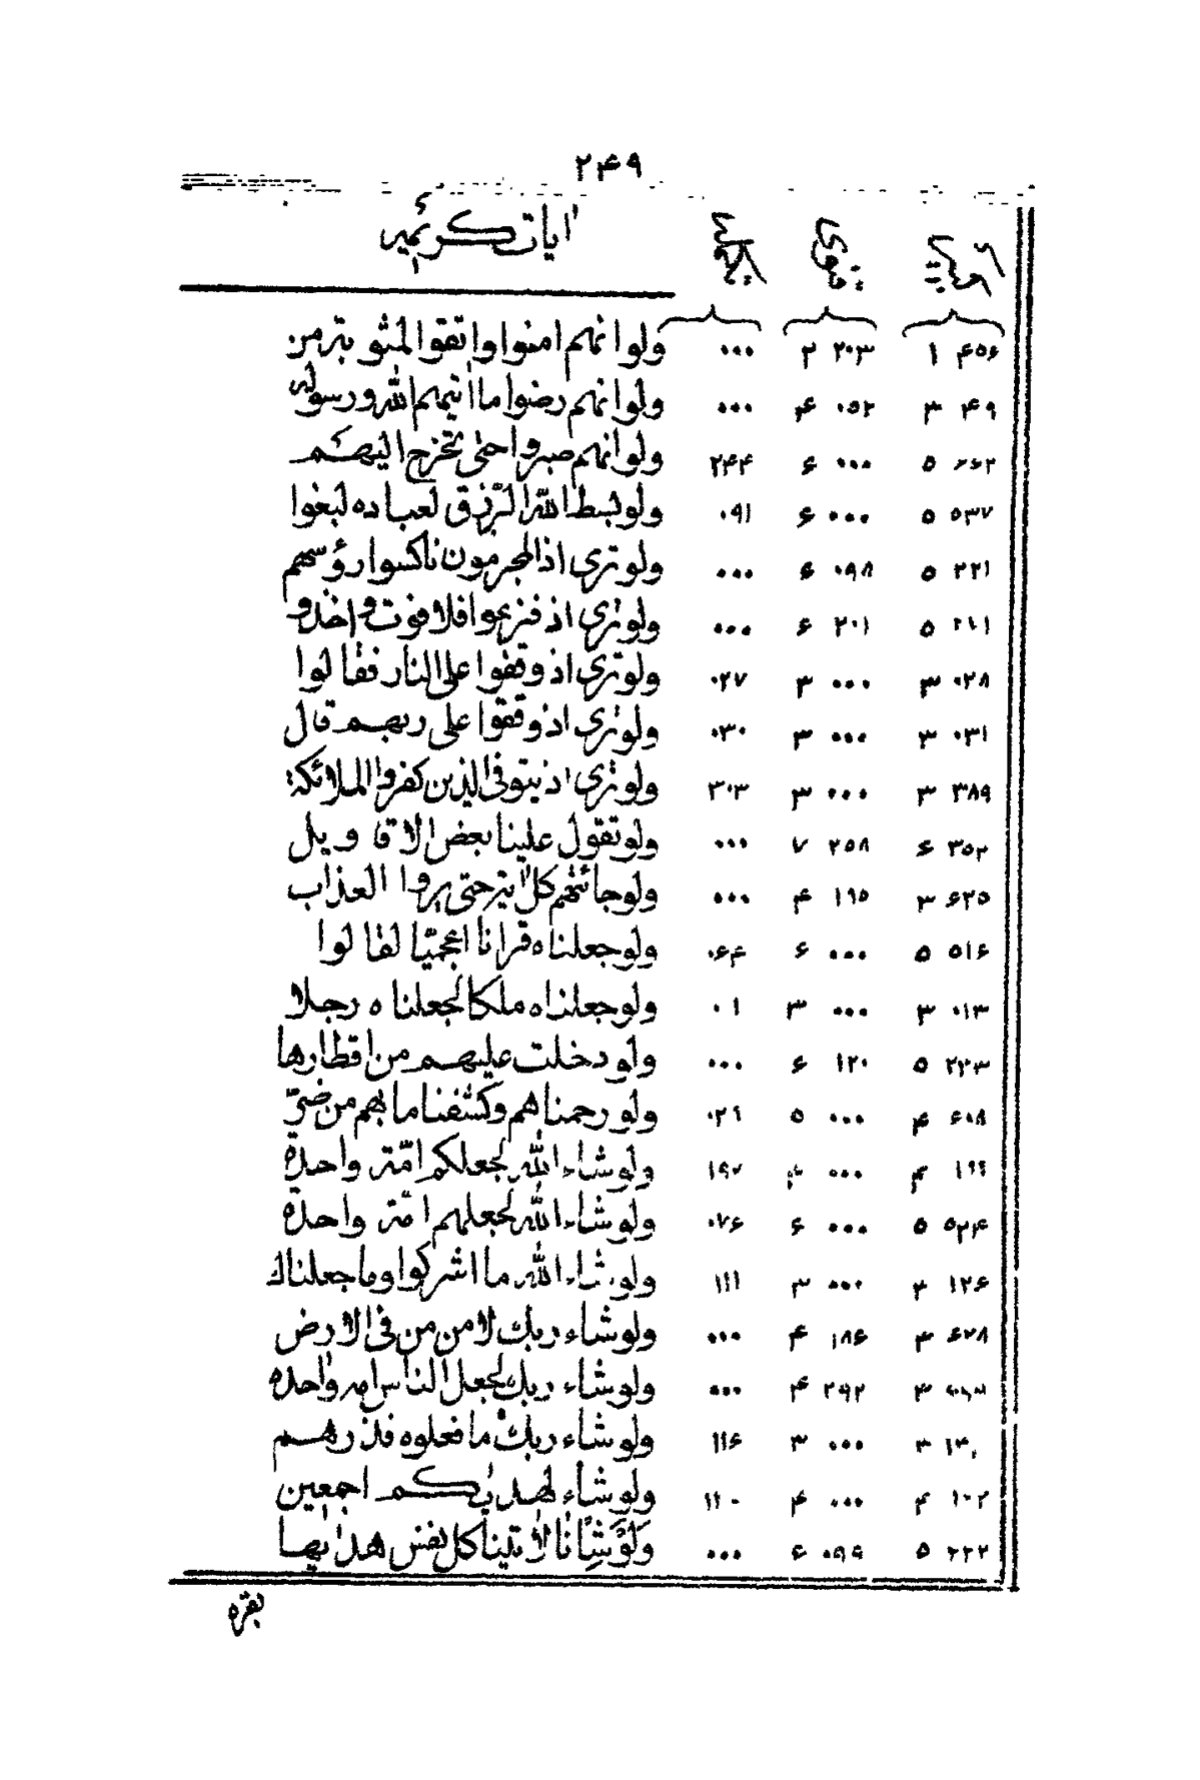 ۲۴۹
ایات کریمه
۱ ۴۵۶ ۲ ۲۰۳ ۰۰۰ ولوا نهم امنوا واتقوا لمثوبة من
۳ ۴۹ ۴ ۰۵۲ ۰۰۰ ولوانهم رضوا ما اتیهم الله ورسوله
۵ ۶ ۰۰۰ ۲۴۴ ولوانهم صبروا حتی تخرج الیهم
۵ ۵۳۷ ۶ ۰۰۰ ۰۹۱ ولوبسط الله الرزق لعباده لبغوا
۵ ۲۲۱ ۶ ۰۹۸ ۰۰۰ ولوتری اذ المجرمون ناکسوا رؤسهم
۵ ۶ ۲۰۱ ۰۰۰ ولوتری اذ فزعوا فلا فوت واخذو
۳ ۰۲۸ ۳ ۰۰۰ ۰۲۷ ولوتری اذ وقفوا علی النار فقالوا
۳ ۰۳۱ ۳ ۰۰۰ ۰۳۰ ولوتری اذ وقفوا علی ربهم قال
۳ ۳۸۹ ۳ ۰۰۰ ۳۰۳ ولوتری اذ یتوفی الذین کفروا الملائکة
۶ ۳۵۲ ۷ ۲۵۸ ۰۰۰ ولوتقول علینا بعض الاقاویل
۳ ۶۲۵ ۴ ۱۹۵ ۰۰۰ ولوجائتهم کل ایة حتی یروا العذاب
۵ ۵۱۶ ۶ ۰۰۰ ۰۶۴ ولوجعلناه قرانا اعجمیّا لقالوا
۳ ۰۱۳ ۳ ۰۰۰ ۰۱ ولوجعلناه ملکا لجعلناه رجلا
۵ ۲۲۳ ۶ ۱۲۰ ۰۰۰ ولودخلت علیهم من اقطارها
۴ ۶۰۸ ۵ ۰۰۰ ۰۲۹ ولورحمناهم وکشفنا ما بهم من ضرّ
۴ ۰۰۰ ولوشاء الله لجعلکم امّة واحدة
۵ ۵۲۴ ۶ ۰۰۰ ۰۷۶ ولوشاء الله لجعلهم امّة واحدة
۳ ۱۲۶ ۳ ۰۰۰ ۱۱۱ ولوشاء الله ما اشرکوا وما جعلناك
۳ ۶۲۸ ۴ ۱۸۶ ۰۰۰ ولوشاء ربك لامن من فی الارض
۳ ۴ ۲۹۲ ۰۰۰ ولوشاء ربك لجعل الناس امة واحدة
۳ ۳ ۰۰۰ ۱۱۶ ولوشاء ربك ما فعلوه فذرهم
۴ ۱۰۲ ۴ ۰۰۰ ۱۱۰ ولوشاء لهدیکم اجمعین
۵ ۲۲۲ ۶ ۰۹۹ ۰۰۰ وَلَوْشِئْنا لاتینا کل نفس هدایها
بقره